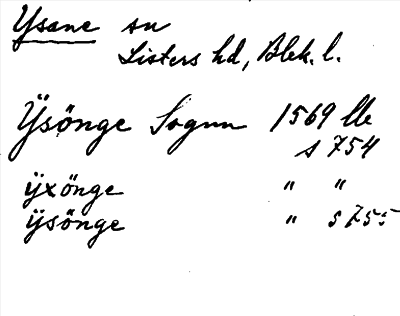 Ysane sn
Listers hd, Blek. l.
Ÿsönge Sognn 1569 lb
s 754
ÿxönge " "
ÿsönge " s 755